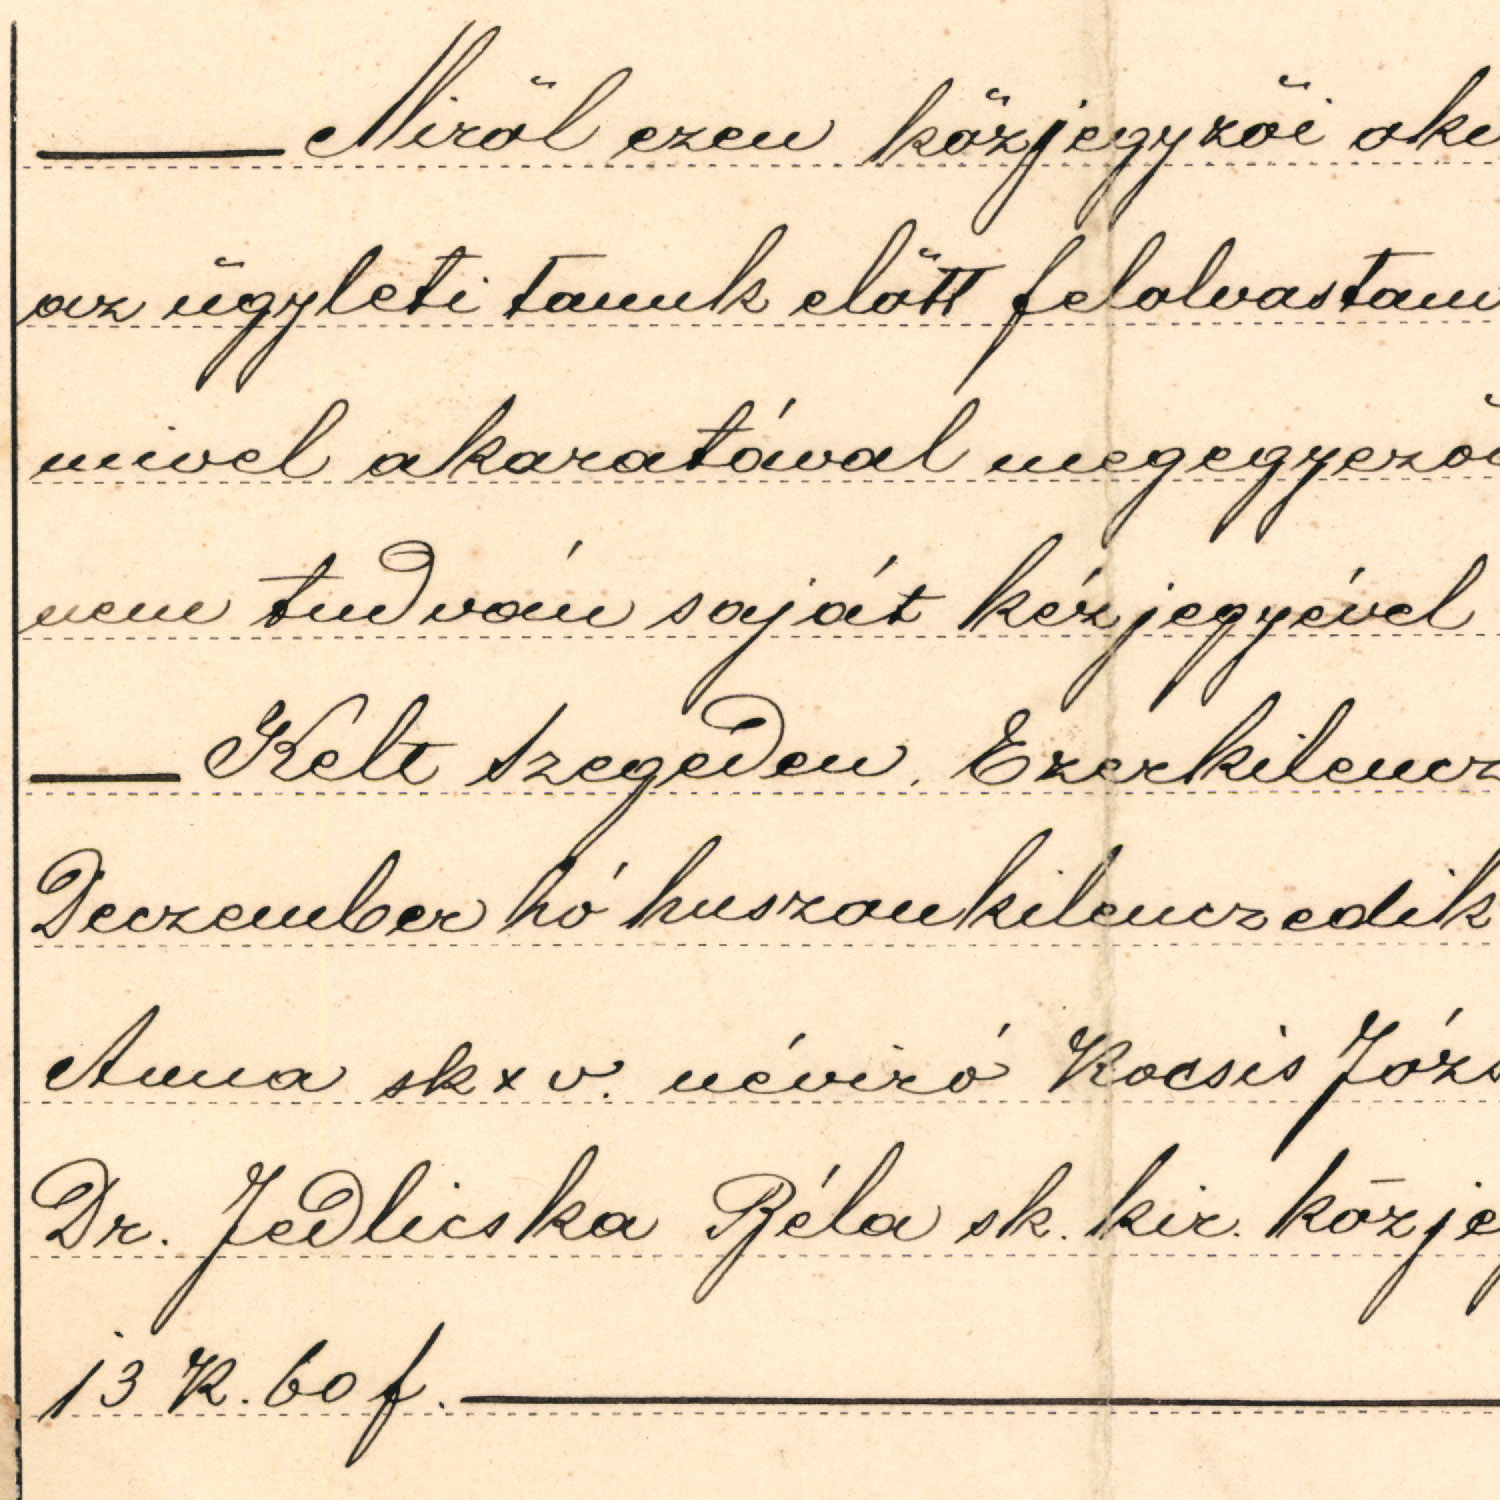 Miről ezen közjegyzői oki
az ügyleti tanuk előtt felolvastam
mivel akaratával megegyező
nem tudván saját kézjegyével
Kelt Szegeden, Ezerkilencz
Deczember hó huszonkilenczedik
Anna sk x v. névíró Kocsis Józs
Dr. Jedlicska Béla sk. kir. közjeg
13 K. 60 f.